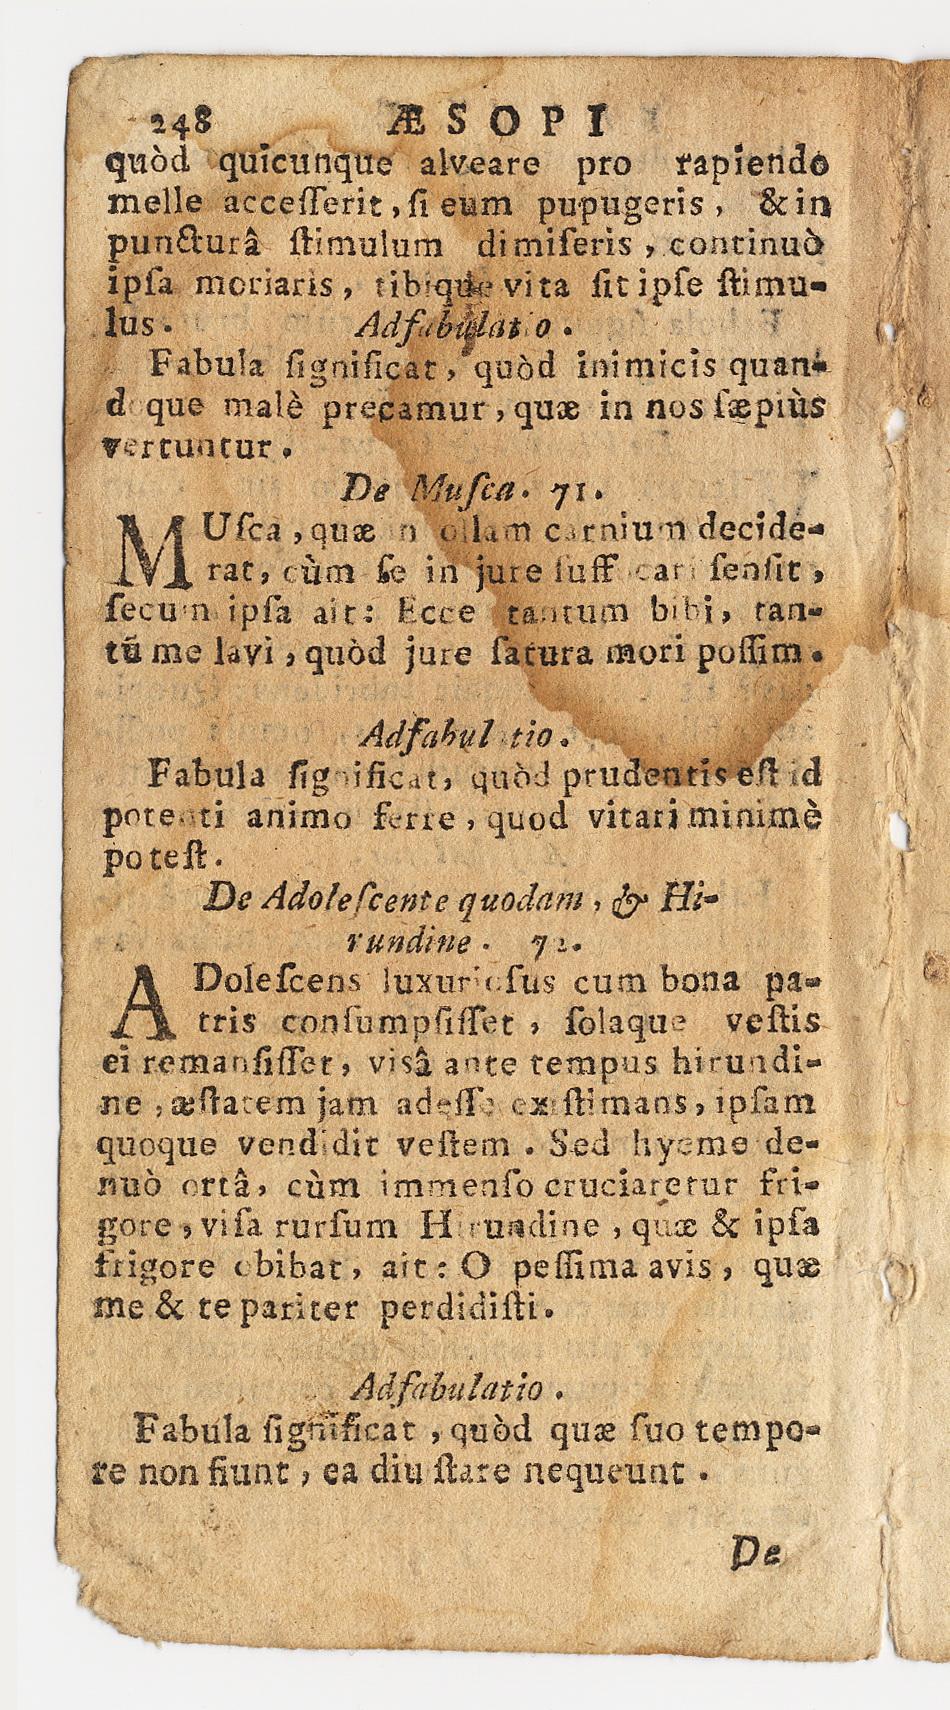 248 ÆSOPI
quòd quicunque alveare pro rapiendo
melle acceſſerit, ſi eum pupugeris, & in
puncturâ ſtimulum dimiſeris, continuò
ipſa moriaris, tibique vita ſit ipſe ſtimu-
lus. Adfabulatio.
Fabula ſignificat, quòd inimicis quan-
doque malè precamur, quæ in nos ſæpiùs
vertuntur.
De Muſca. 71.
MUſca, quæ in ollam carnium decide-
rat, cùm ſe in jure ſuffocari ſenſit,
ſecum ipſa ait: Ecce tantum bibi, tan-
tũ me lavi, quòd jure ſatura mori poſſim.
Adfabulatio.
Fabula ſignificat, quòd prudentis eſt id
potenti animo ferre, quod vitari minimè
poteſt.
De Adoleſcente quodam, & Hi-
rundine. 72.
ADoleſcens luxurioſus cum bona pa-
tris conſumpſiſſet, ſolaque veſtis
ei remanſiſſet, visâ ante tempus hirundi-
ne, æſtatem jam adeſſe exiſtimans, ipſam
quoque vendidit veſtem. Sed hyeme de-
nuò ortâ, cùm immenſo cruciaretur fri-
gore, viſa rurſum Hirundine, quæ & ipſa
frigore obibat, ait: O peſſima avis, quæ
me & te pariter perdidiſti.
Adfabulatio.
Fabula ſignificat, quòd quæ ſuo tempo-
re non fiunt, ea diu ſtare nequeunt.
De